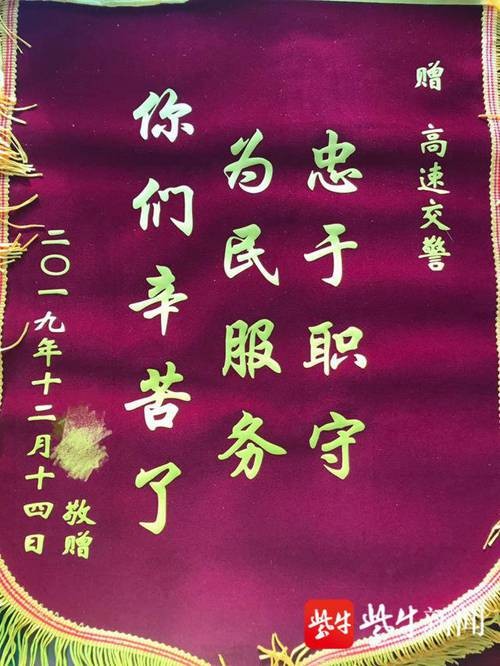 赠 高速交警
忠于职守
为民服务
你们辛苦了
敬赠
二〇一九年十二月十四日
紫牛 紫牛新闻